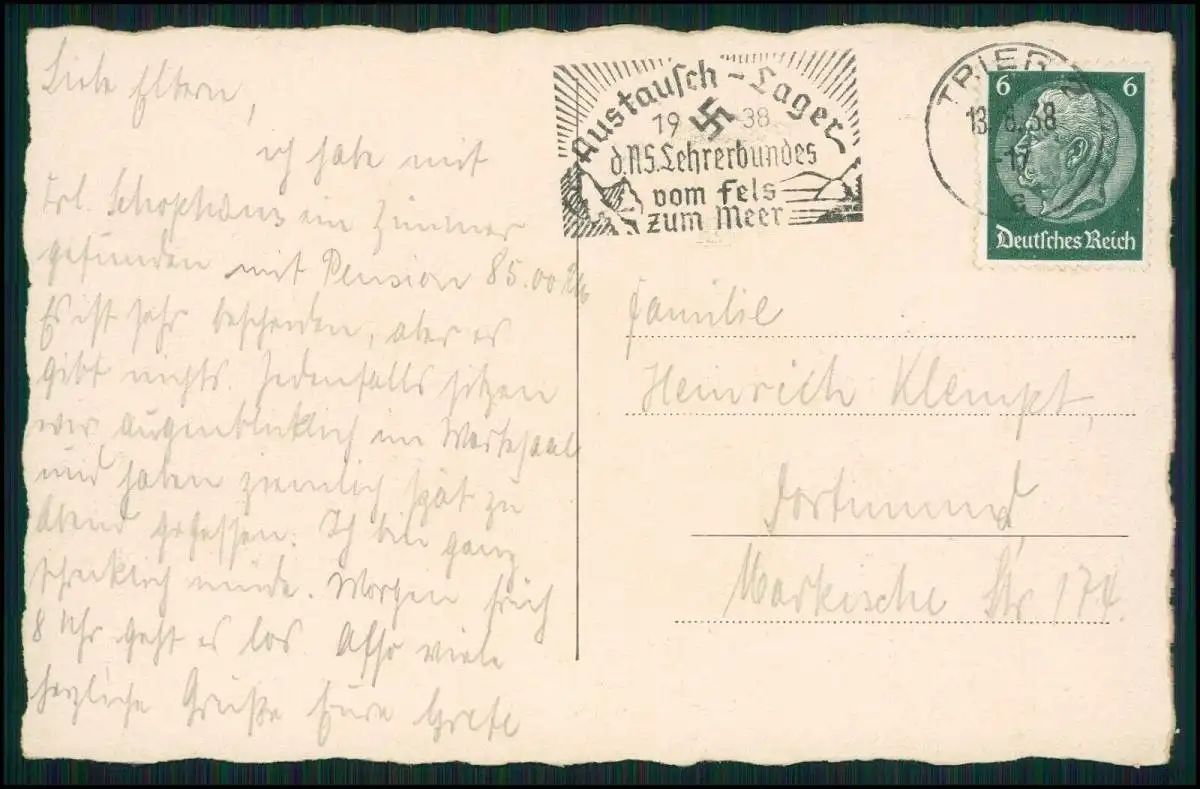 Liebe Eltern,
ich habe mit
Frl. ein Zimmer
gefunden mit Pension 85.00
Es ist sehr bescheiden, aber es
gibt nichts. Jedenfalls sitzen
wir augenblicklich im Wartesaal
und haben ziemlich spät zu
Abend gegessen. Ich bin ganz
schrecklich müde. Morgen früh
8 Uhr geht es los. Also viele
herzliche Grüße Eure Grete
Austausch-Lager
1938
d. NS. Lehrerbundes
vom Fels
zum Meer
TRIER 2
13. 8. 38
-17
6 6
Deutsches Reich
Familie
Heinrich Klempt,
Dortmund
Markische Str 174.